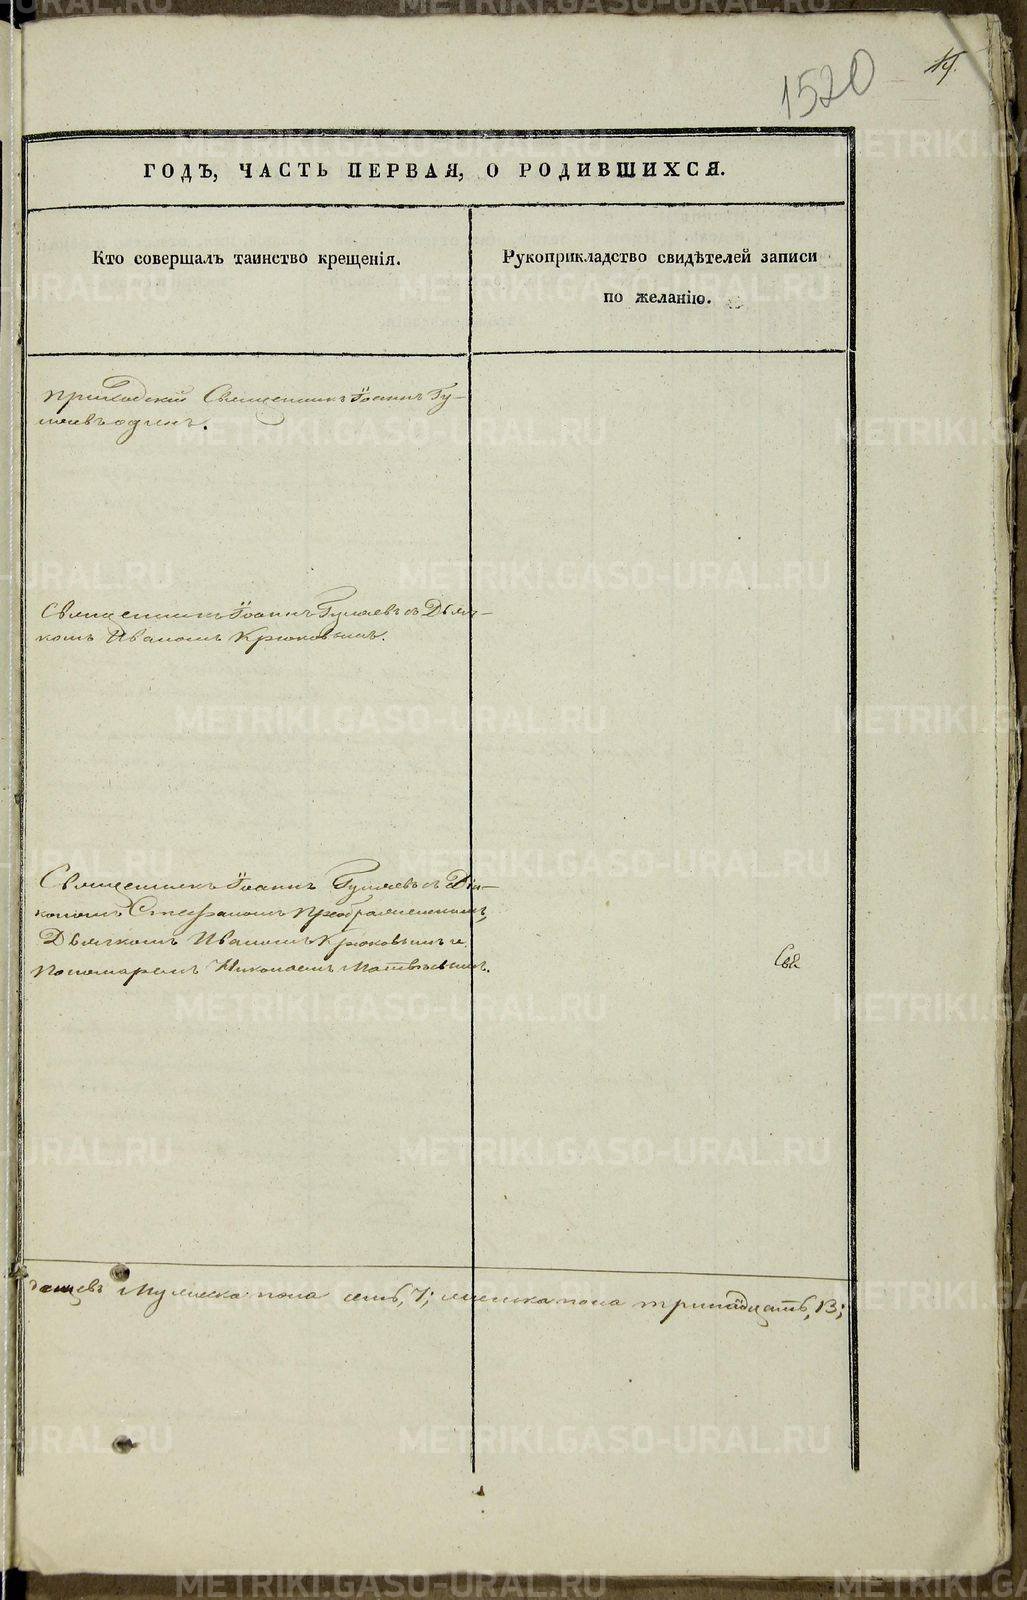 1520
ГОДЪ, ЧАСТЬ ПЕРВАЯ, О РОДИВШИХСЯ.
Кто совершалъ таинство крещенія.
Рукоприкладство свидѣтелей записи
по желанію.
Приходскій Священникъ Іоаннъ Гу-
ляевъ одинъ.
Священникъ Іоаннъ Гуляевъ съ Дьяч-
комъ Иваномъ Крюковымъ.
Священникъ Іоаннъ Гуляевъ съ Діа-
кономъ Стефаномъ Преображенскимъ,
Дьячкомъ Иваномъ Крюковымъ и
Пономаремъ Николаемъ Матвѣевымъ.
Мужеска пола семь, 7; женска пола тринадцать, 13;
METRIKI.GASO-URAL.RU